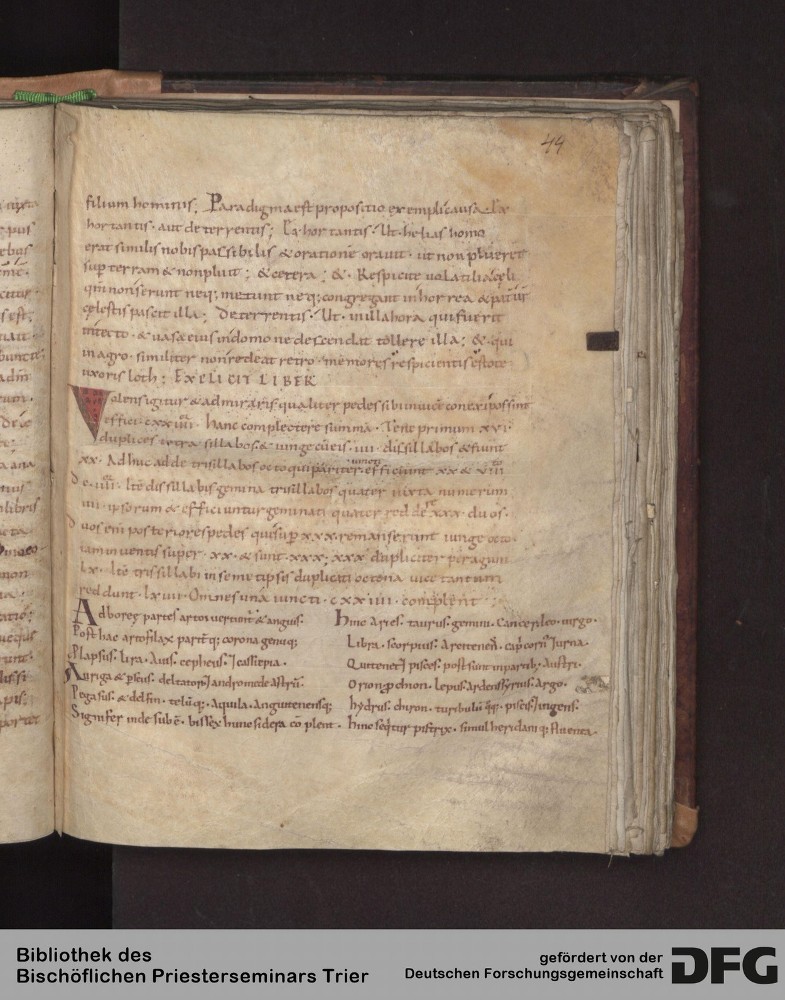 44
filium hominis. Paradigma est propositio exempli causa. Ex
hortantis. aut deterrentis; Exhortantis. Ut. helias homo
erat similis nobis passibilis & oratione oravit. ut non plueret
sup terram & non pluit; & cetera; &. Respicite volatilia cęli
qm̄ non serunt neq; metunt neq; congregant in horrea & pat ur̄
cęlestis pascit illa; Deterrentis. Ut. in illa hora qui fuerit
in tecto. & vasa eius in domo ne descendat tollere illa; & qui
in agro. similiter non redeat retro. memores respicientis estote
uxoris loth; EXPLICIT LIBER
Volens igitur & admiraris qualiter pedes sibi invicē conexi possint
effici. cxxiiii. hanc complectere summā. Tene primum xvi.
duplices tetrasillabos & iunge cū eis. iiii. dissillabos & fiunt
xx. Adhuc adde trisillabos octo qui pariter iuncti efficiunt xx & viii
iiii. Itē dissillabis gemina trisillabos quater iuxta numerum
iiii. ipsorum & efficiuntur geminati quater red de xxx. duos.
duos em̄ posteriores pedes qui sup xxx. remanserunt iunge octo
iam inventis super. xx. & sunt. xxx; xxx dupliciter peragunt
lx. Itē trissillabi in semetipsis duplicati octona vice tantum
reddunt. lxiiii. Omnes unā iuncti. cxxiiii. complent;
Ad boreę partes arcti vertunt & anguis.
Post has artofilax parit̄q; corona genuq;
Plapsus. lira. Avis. cepheus. & cassiepia.
Auriga & pseus. deltaton & andromedę astrū.
Pegasus. & delfin. telūq;. Aquila. Anguitenensq;
Signifer inde subē. bissex hunc sidera cōplent.
hinc Aries. taurus. gemini. Cancer. leo. virgo.
Libra. scorpius. Arcitenēs. capcorn & urna.
Qui tenet & pisces. post sunt in partib; Austri.
Orion pcion. lepus. ardens syrius. Argo.
hydrus. chiron. turibulū qq. piscis & ingens.
hinc seq̄tur pistrix. simul heridaniq; fluenta.
Bibliothek des
Bischöflichen Priesterseminars Trier
gefördert von der
Deutschen Forschungsgemeinschaft
DFG